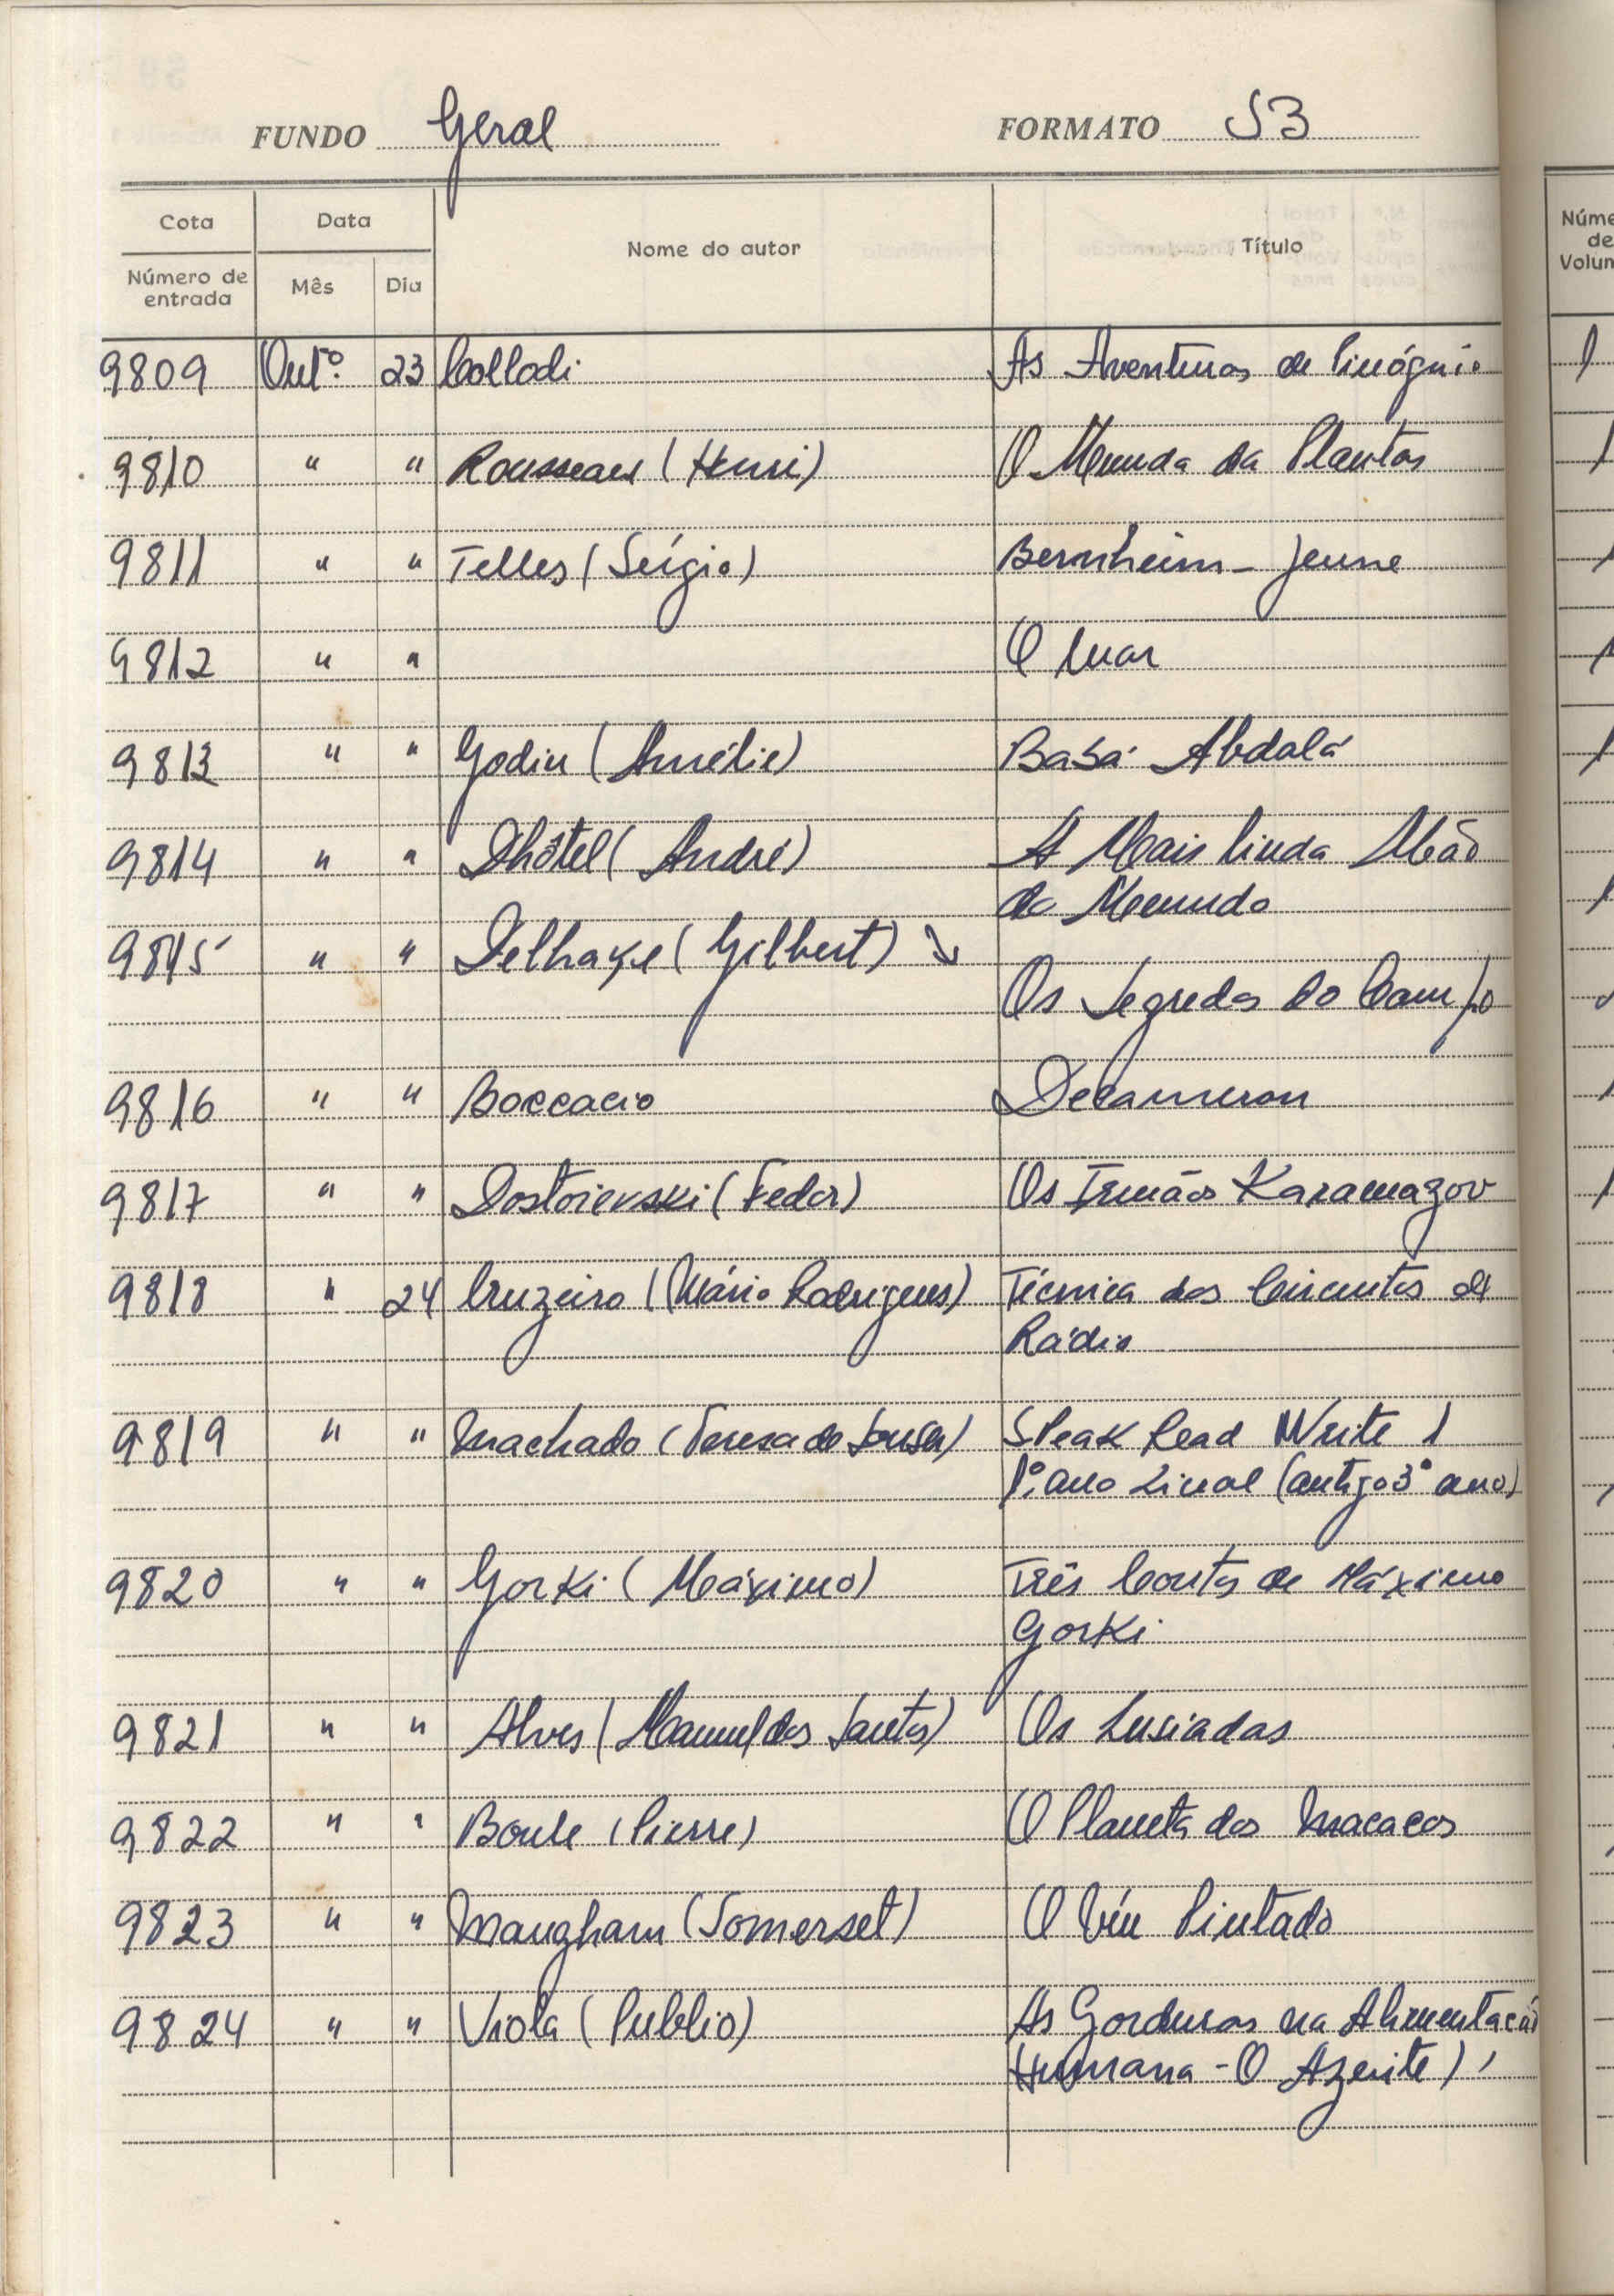 FUNDO Geral FORMATO S3
Cota Data Nome do autor Título
Número de entrada Mês Dia
Núme
de
Volum
9809 Outº. 23 Collodi As Aventuras de Pinóquio
9810 " " Rousseau (Henri) O Mundo da Plantas
9811 " " Telles (Sérgio) Bernheim - Jeune
9812 " " O Mar
9813 " " Godin (Amélie) Babá Abdalá
9814 " " Dhôtel (André) A Mais linda Mão
do Mundo
9815 " " Delhaye (Gilbert) ↘
Os Segredos do Campo
9816 " " Boccacio Decameron
9817 " " Dostoievski (Fedor) Os Irmãos Karamazov
9818 " 24 Cruzeiro (Mário Rodrigues) Técnica dos Circuitos de
Rádio
9819 " " Machado (Teresa de Sousa) Speak Read Write 1
1º. ano Liceal (antigo 3º ano)
9820 " " Gorki (Máximo) Três Contos de Máximo
Gorki
9821 " " Alves (Manuel dos Santos) Os Lusiadas
9822 " " Boule (Pierre) O Planeta dos Macacos
9823 " " Maugham (Somerset) O Véu Pintado
9824 " " Viola (Publio) As Gorduras na Alimentacão
Humana - O Azeite)